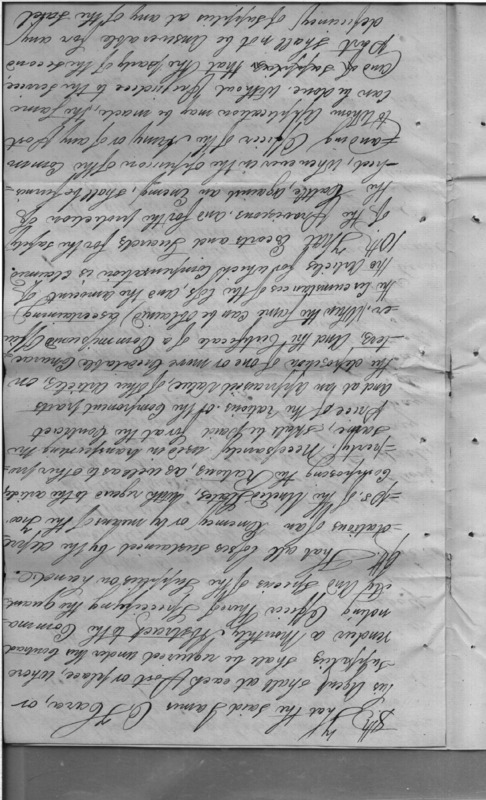 8th That the said James OHara, or
his Agent shall at each Post or place, where
Supplies shall be required under this Contract
render a Monthly Abstract to the Comma
nding Officer thereof Specifying the quant
ity and Species of the Supplies on hand &c.
9th That all losses sustained by the depre
dations of an Enemy or by means of the Troo
ps of the United States, with regard to the articles
Composing the Rations, as well as to other pro
perty, Necessarily used in transporting the
same, shall be paid for at the Contract
Price of the rations or the Component parts
and at an appraised value, of other Articles, on
the deposition of one or more Creditable Charac
ters, and the Certificate of a Commissioned Offic
er, (when the same can be obtained) ascertaining
the Circumstances of the loss, and the amount of
the Articles for which Compensation is claimed.
10th That Escorts and Guards for the Safety
of the Provisions, and for the protection of
the Cattle, against an Enemy, shall be furni=
shed, whenever in the opinion of the Comm
anding Officer of the Army or of any Post
to whom Application may be made, the same
can be done without prejudice to the Service,
and that the party of the Second
Part shall not be answerable for any
deficiency of Supplies at any of the said